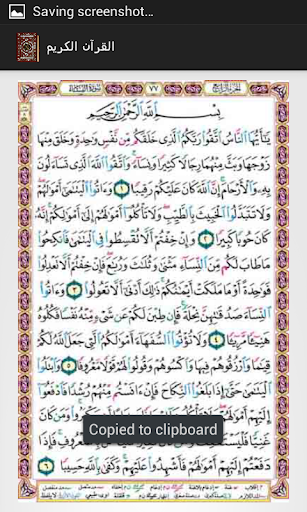 Saving screenshot...
القرآن الكريم
سُورَةُ النِّسَاءِ ٧٧ الجزء الرابع
بِسْمِ اللَّهِ الرَّحْمَٰنِ الرَّحِيمِ
يَٰٓأَيُّهَا النَّاسُ اتَّقُوا رَبَّكُمُ الَّذِي خَلَقَكُم مِّن نَّفْسٍ وَٰحِدَةٍ وَخَلَقَ مِنْهَا
زَوْجَهَا وَبَثَّ مِنْهُمَا رِجَالًا كَثِيرًا وَنِسَآءً وَاتَّقُوا اللَّهَ الَّذِي تَسَآءَلُونَ
بِهِۦ وَالْأَرْحَامَ إِنَّ اللَّهَ كَانَ عَلَيْكُمْ رَقِيبًا ١ وَءَاتُوا الْيَتَٰمَىٰٓ أَمْوَٰلَهُمْ
وَلَا تَتَبَدَّلُوا الْخَبِيثَ بِالطَّيِّبِ وَلَا تَأْكُلُوٓا أَمْوَٰلَهُمْ إِلَىٰٓ أَمْوَٰلِكُمْ إِنَّهُۥ
كَانَ حُوبًا كَبِيرًا ٢ وَإِنْ خِفْتُمْ أَلَّا تُقْسِطُوا فِي الْيَتَٰمَىٰ فَانكِحُوا
مَا طَابَ لَكُم مِّنَ النِّسَآءِ مَثْنَىٰ وَثُلَٰثَ وَرُبَٰعَ فَإِنْ خِفْتُمْ أَلَّا تَعْدِلُوا
فَوَٰحِدَةً أَوْ مَا مَلَكَتْ أَيْمَٰنُكُمْ ذَٰلِكَ أَدْنَىٰٓ أَلَّا تَعُولُوا ٣ وَءَاتُوا
النِّسَآءَ صَدُقَٰتِهِنَّ نِحْلَةً فَإِن طِبْنَ لَكُمْ عَن شَيْءٍ مِّنْهُ نَفْسًا فَكُلُوهُ
هَنِيٓـًٔا مَّرِيٓـًٔا ٤ وَلَا تُؤْتُوا السُّفَهَآءَ أَمْوَٰلَكُمُ الَّتِي جَعَلَ اللَّهُ لَكُمْ
قِيَٰمًا وَارْزُقُوهُمْ فِيهَا وَاكْسُوهُمْ وَقُولُوا لَهُمْ قَوْلًا مَّعْرُوفًا ٥ وَابْتَلُوا
الْيَتَٰمَىٰ حَتَّىٰٓ إِذَا بَلَغُوا النِّكَاحَ فَإِنْ ءَانَسْتُم مِّنْهُمْ رُشْدًا فَادْفَعُوٓا
إِلَيْهِمْ أَمْوَٰلَهُمْ وَلَا تَأْكُلُوهَآ إِسْرَافًا وَبِدَارًا أَن يَكْبَرُوا وَمَن كَانَ
غَنِيًّا فَلْيَسْتَعْفِفْ بِالْمَعْرُوفِ فَإِذَا
Copied to clipboard
دَفَعْتُمْ إِلَيْهِمْ أَمْوَٰلَهُمْ فَأَشْهِدُوا عَلَيْهِمْ وَكَفَىٰ بِاللَّهِ حَسِيبًا ٦